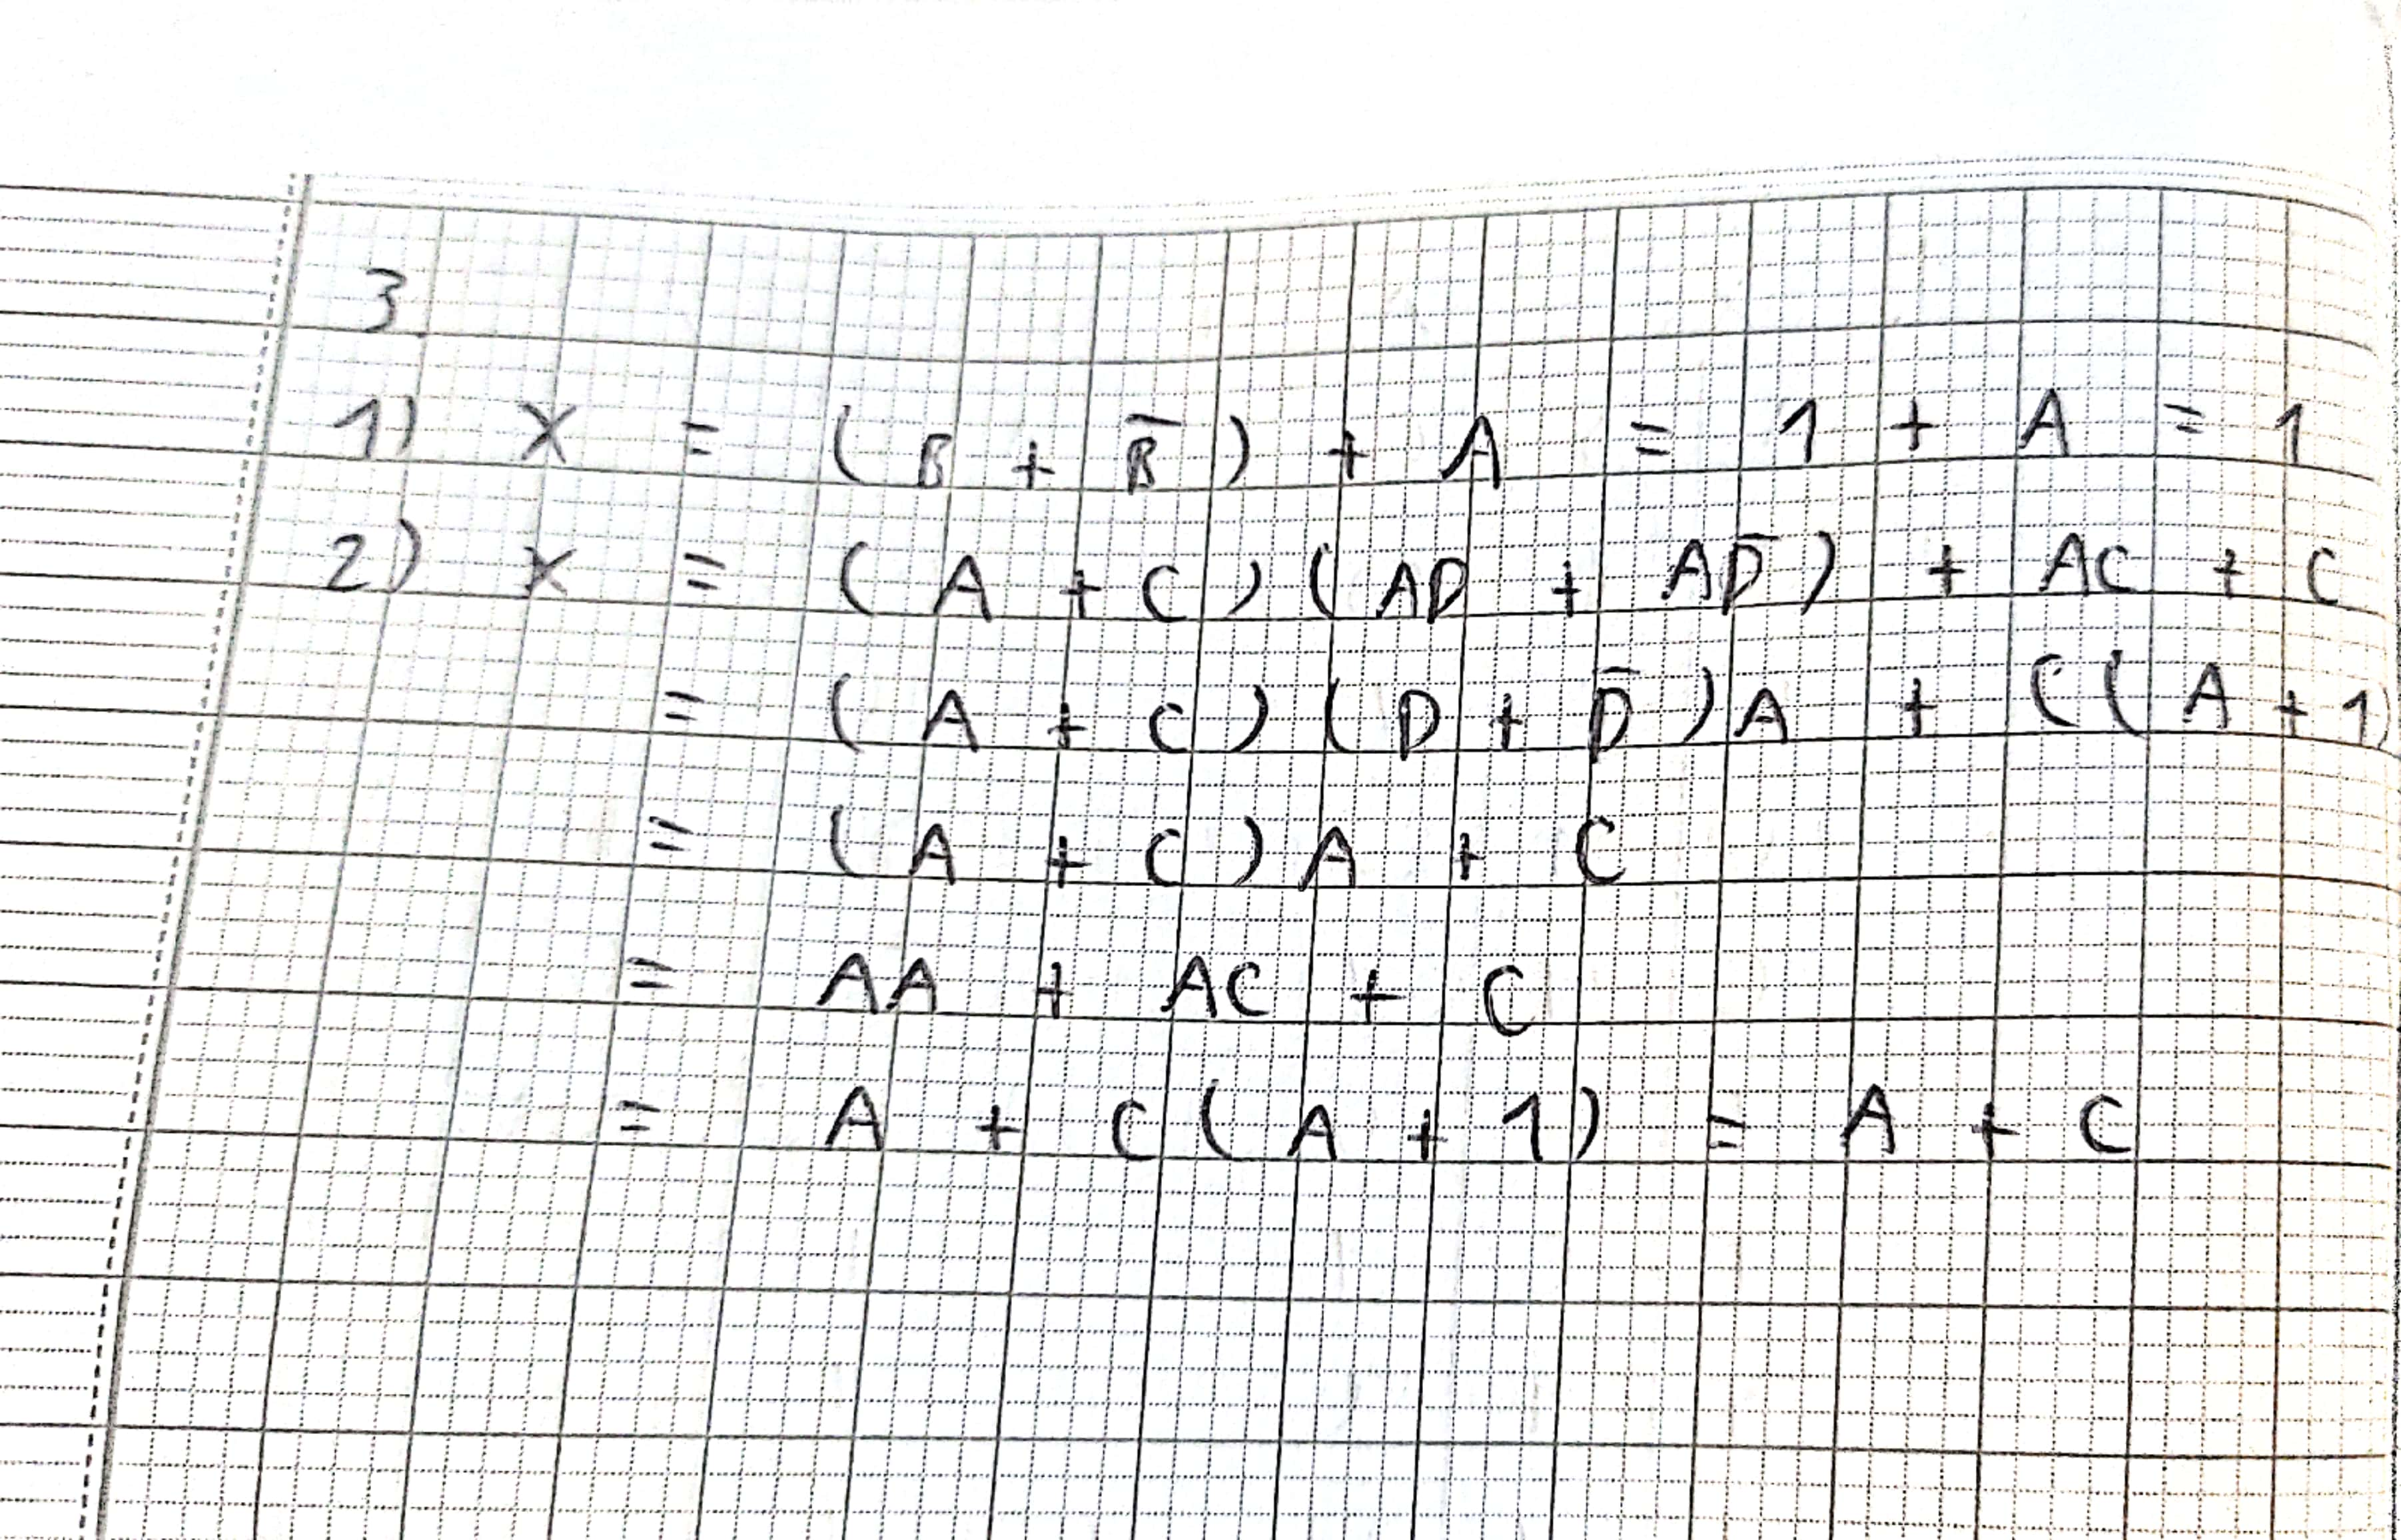 3
1) X = (B + B̅) + A = 1 + A = 1
2) X = (A + C)(AD + AD̅) + AC + C
= (A + C)(D + D̅)A + C(A + 1)
= (A + C)A + C
= AA + AC + C
= A + C(A + 1) = A + C